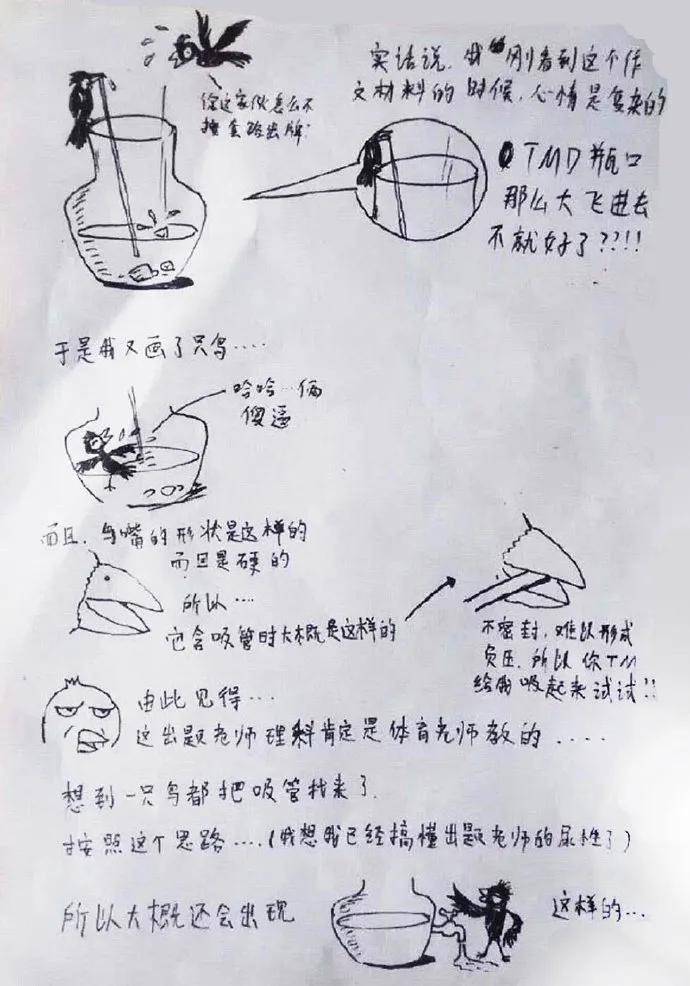 你这家伙怎么不
按套路出牌
实话说，我刚看到这个作
文材料的时候，心情是复杂的
TMD瓶口
那么大飞进去
不就好了???!!!
于是我又画了只鸟....
哈哈...俩
傻逼
而且，鸟嘴的形状是这样的
而且是硬的
所以....
它含吸管时大概是这样的
不密封，难以形成
负压，所以你TM
给我吸起来试试!!
由此见得....
这出题老师理科肯定是体育老师教的....
想到一只鸟都把吸管找来了.
按照这个思路....(我想我已经搞懂出题老师的尿性了)
所以大概还会出现
这样的...